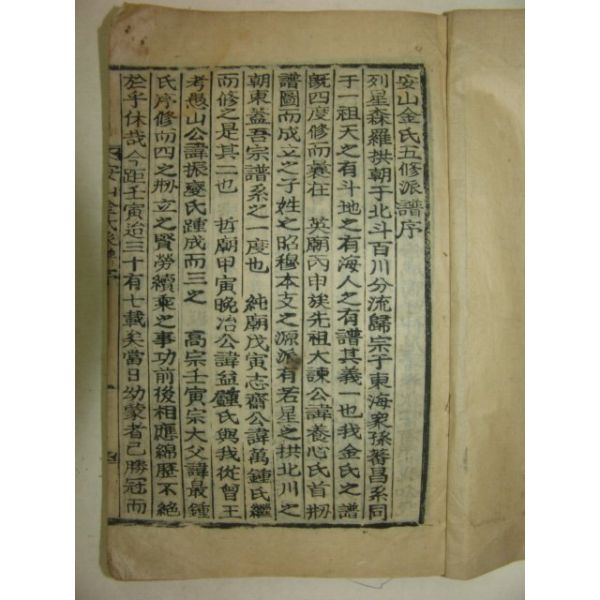 安山金氏五修派譜序
列星森羅拱朝于北斗百川分流歸宗于東海衆孫蕃昌系同
于一祖天之有斗地之有海人之有譜其義一也我金氏之譜
旣四度修而曩在 英廟丙申族先祖大諫公諱養心氏首刱
譜圖而成立之子姓之昭穆本支之源派有若星之拱北川之
朝東蓋吾宗譜系之一度也 純廟戊寅志齋公諱萬鍾氏繼
而修之是其二也 哲廟甲寅晩冶公諱益鍾氏與我從曾王
考愚山公諱振燮氏踵成而三之 高宗壬寅宗大父諱最鍾
氏序修而四之刱立之賢勞續乘之事功前後相應綿歷不絶
於乎休哉今距壬寅治三十有七載矣當日幼蒙者已勝冠而
安山金氏派譜 序